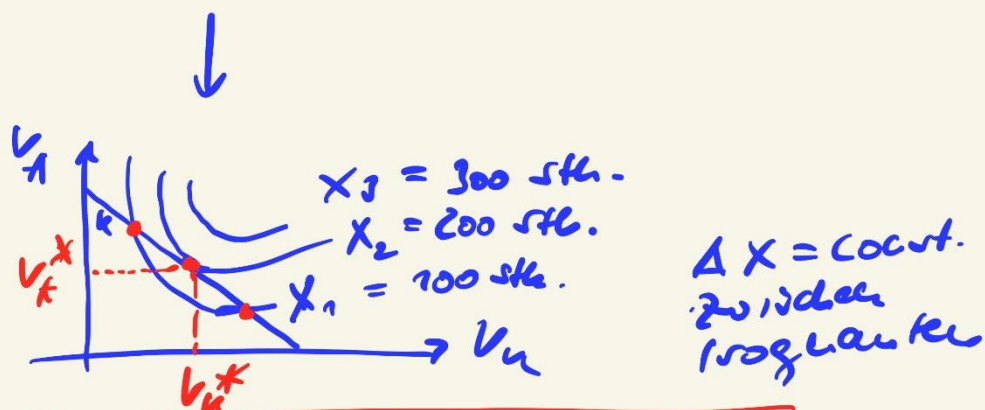 V_A
X_3 = 300 stk.
X_2 = 200 stk.
X_1 = 100 stk.
k
V_K^*
V_K
V_K^*
Δ X = const.
zwischen
Isoquanten